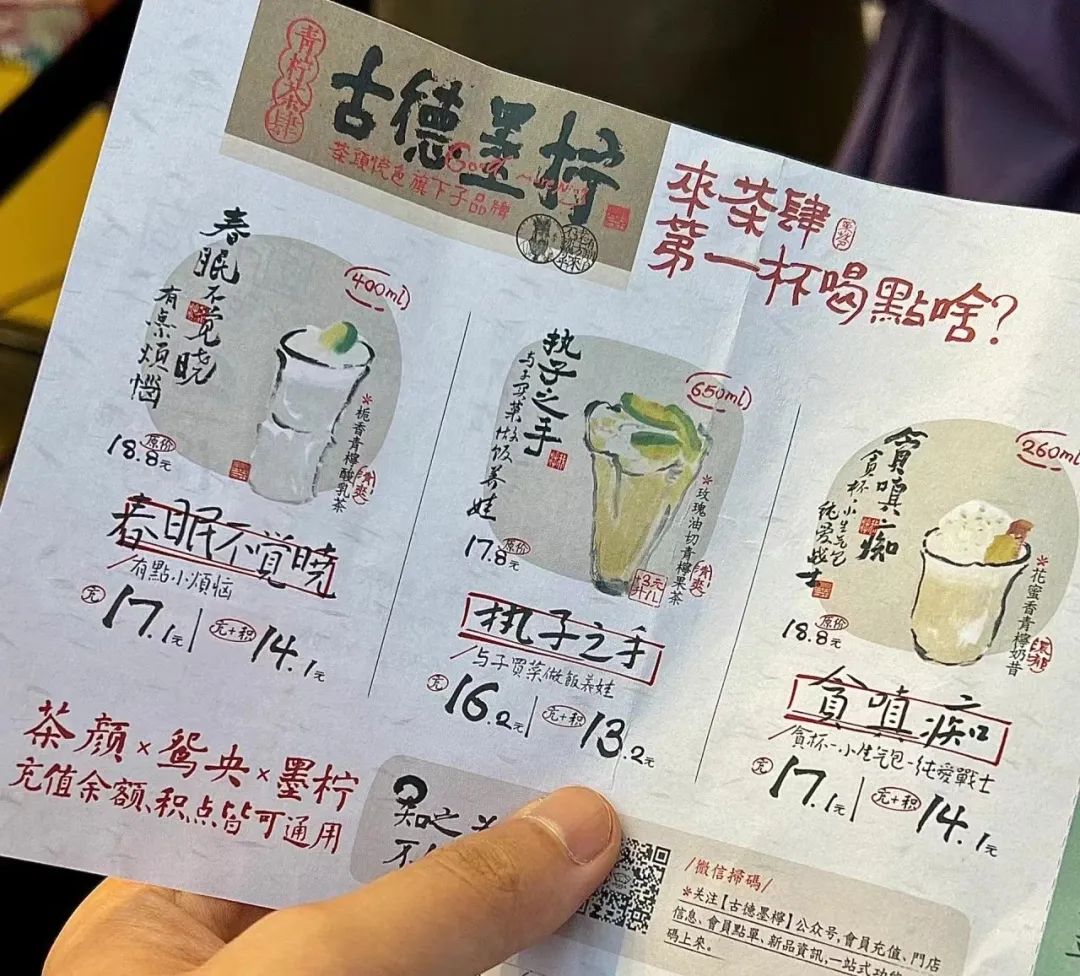 青柠茶肆
古德墨柠
茶颜悦色旗下子品牌
來茶肆
第一杯喝點啥?
春眠不觉晓
有桌烦惱
400ml
*栀香青檸酸乳茶
清爽
18.8元
原价
春眠不觉曉
有點小煩惱
充 17.1元
充+积 14.1元
执子之手
与子买菜做饭养娃
650ml
*玫瑰油切青檸果茶
清爽
17.8元
原价
执子之手
与子買菜做飯养娃
充 16.2元
充+积 13.2元
貪嗔痴
貪杯·小生气包
纯爱战士
260ml
*花蜜香青檸奶昔
浓郁
18.8元
原价
貪嗔痴
貪杯-小生气包-純爱戰士
充 17.1元
充+积 14.1元
茶颜×鸳央×墨柠
充值余额、积点皆可通用
/微信掃碼/
*关注【古德墨檸】公众号,會員充值、門店
信息、會員點單、新品資訊,一站式功能
碼上來。